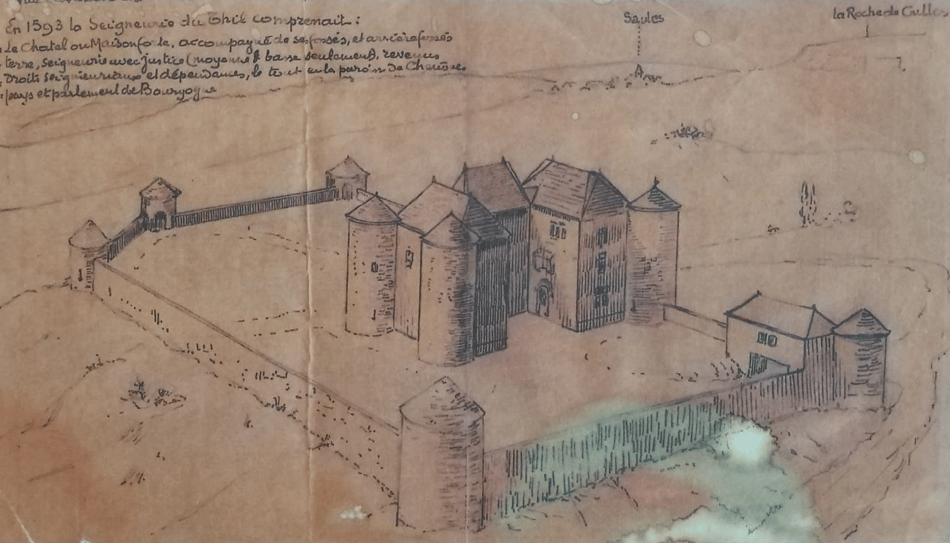 En 1593 la Seigneurie du Thil comprenait :
le Chatel ou Maison forte, accompagné de ses fossés, et arrière fossés
terre, seigneurie avec justice (moyenne & basse seulement), revenus
Droits seigneuriaux et dépendances, le tout en la paroisse de Chenôve
pays et parlement de Bourgogne
Saules
la Roche de Culles